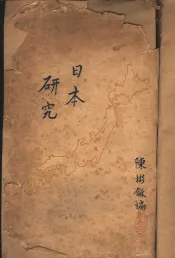 日本
研究
陳彬龢編